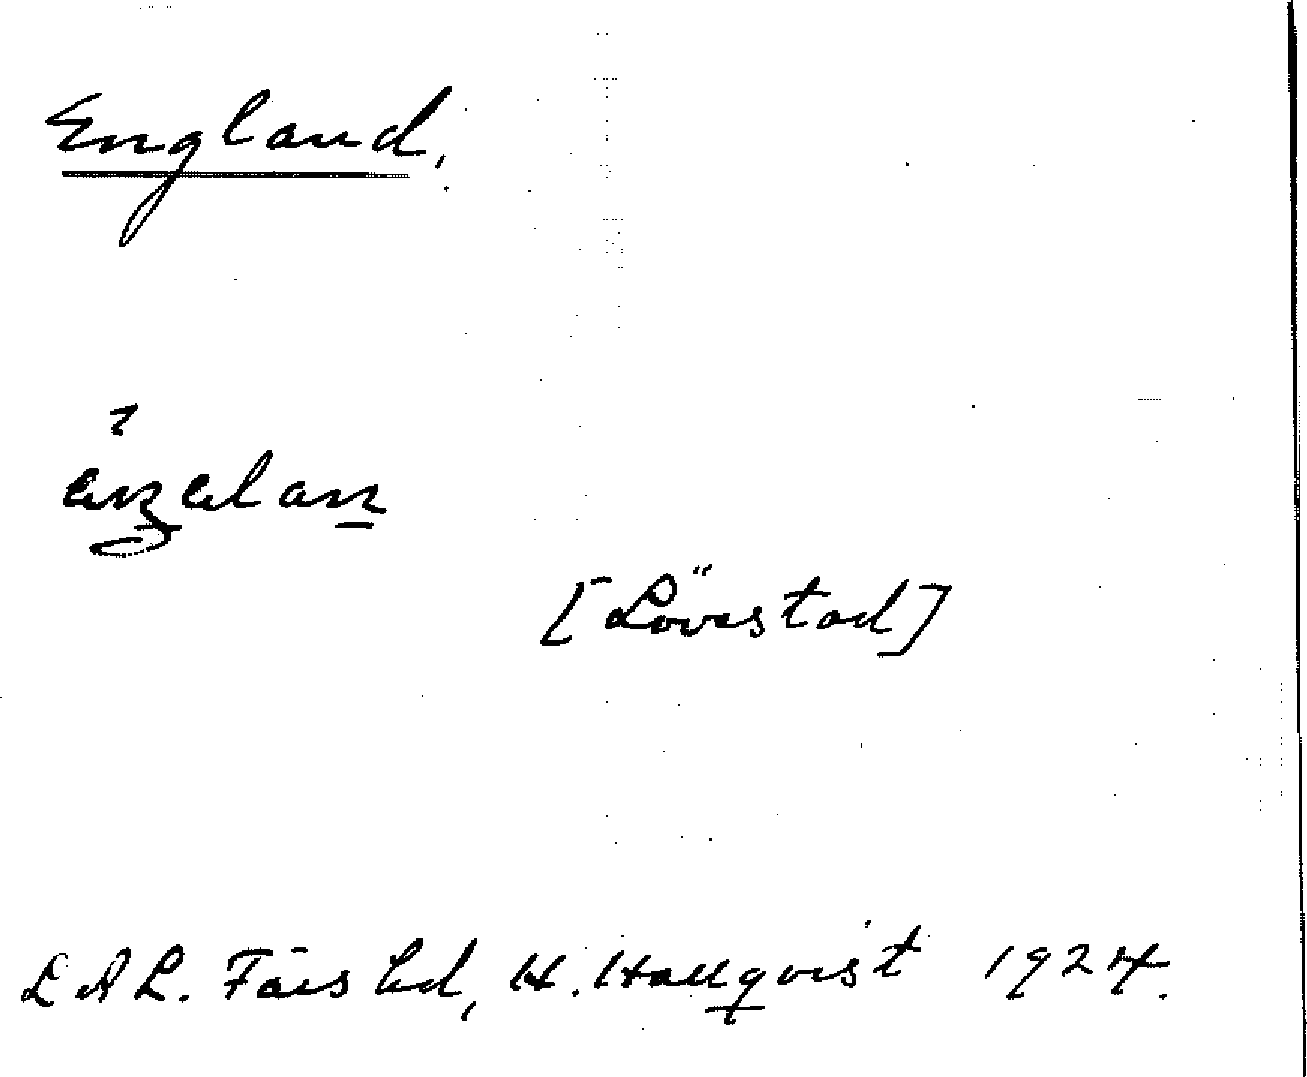 England,
[Lövestad]
L A L. Färs hd, H. Hallqvist 1924.